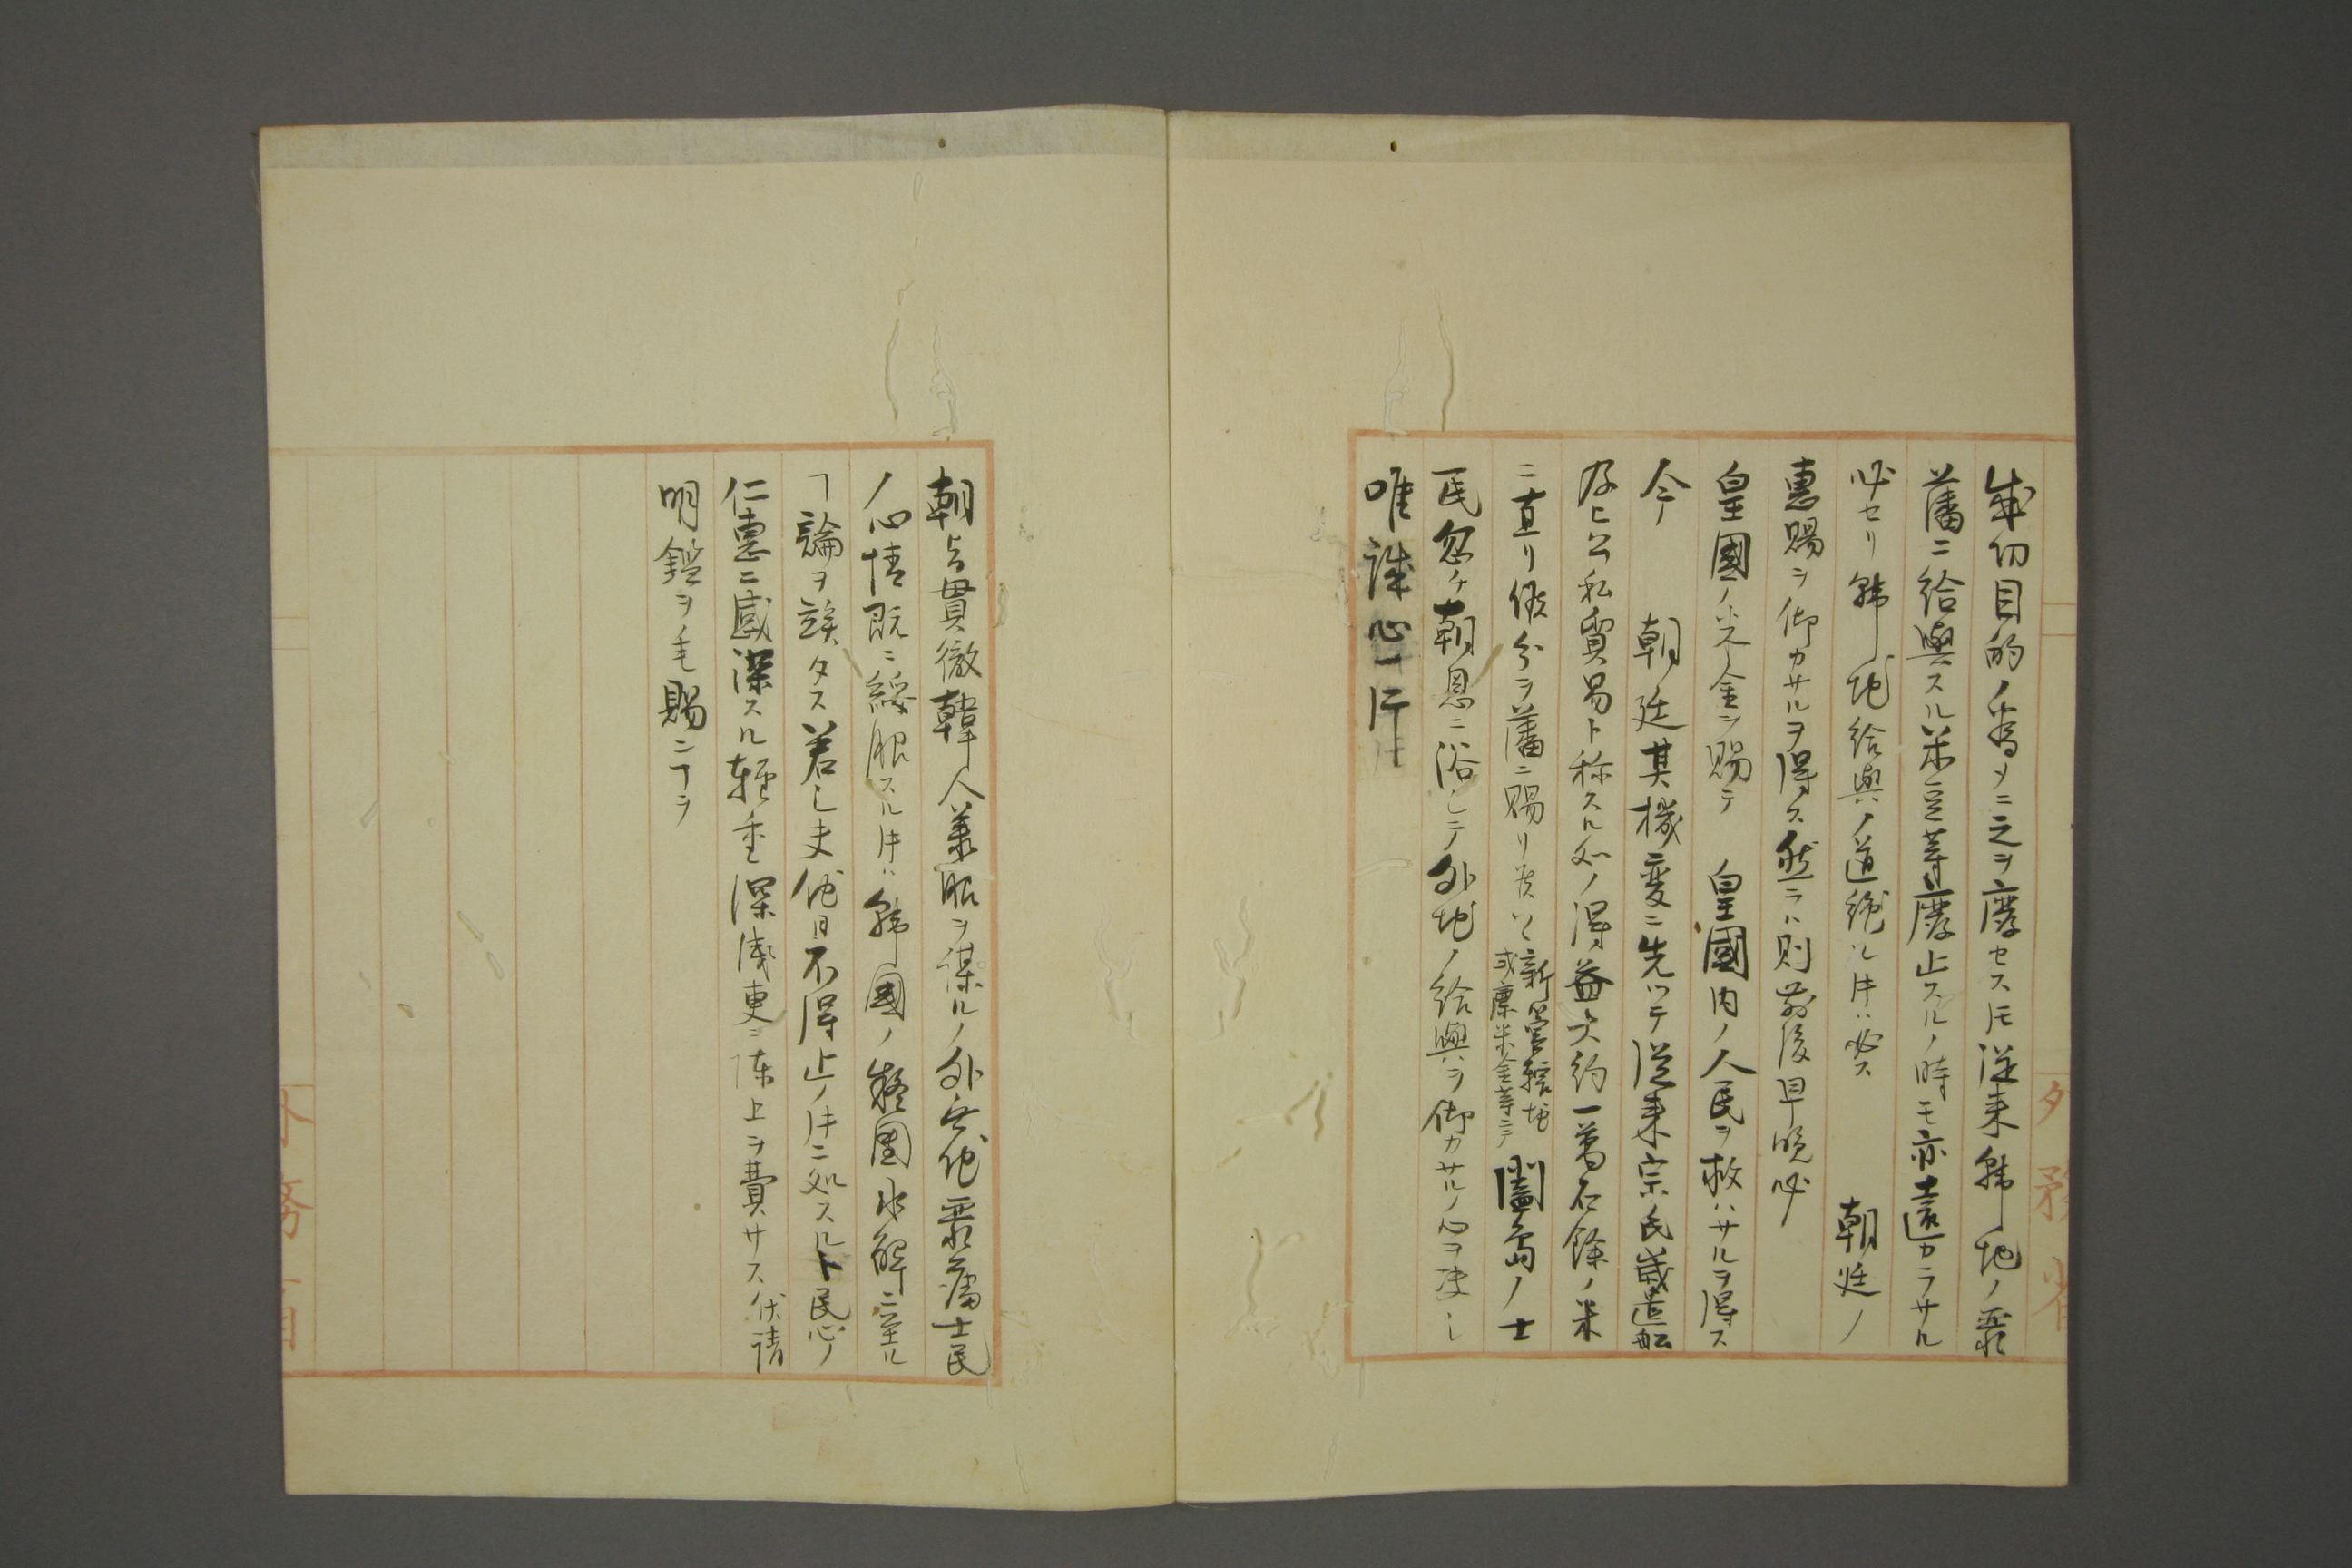 成功目的ノ為メニ之ヲ廃セスㇳモ従来韓地ノ嚴
藩ニ給與スル米豆等廃止スルノ時モ亦遠カラサル
必セリ韓地給與ノ道絶ルㇳキハ必ス 朝廷ノ
惠賜ヲ仰カサルヲ得ス然ラハ則前後早晩必
皇國ノ米金ヲ賜テ 皇國内ノ人民ヲ救ハサルヲ得ス
今 朝廷其機変ニ先ツテ従来宗氏歳遣船
及ヒ公私貿易ト称スル処ノ得益大約一萬石餘ノ米
ニ直リ候分ヲ藩ニ賜リ候ハヽ 新管轄地
或廩米金等ニテ 闔島ノ士
民忽チ朝恩ニ浴シテ外地ノ給與ヲ仰カサルノ心ヲ決シ
唯誠心一片
朝旨貫徹韓人業服ヲ謀ルノ外無他嚴藩士民
ノ心情既ニ綏服スルㇳキハ韓國ノ凝團氷解ニ至ル
ヿ論ヲ竢タス若シ夫他日不得止ノㇳキニ処スルト民心ノ
仁惠ニ感深スル軽重深浅更ニ陳上ヲ費サス伏請
明鑑ヲ毛賜ニヿヲ
外務省
外務省